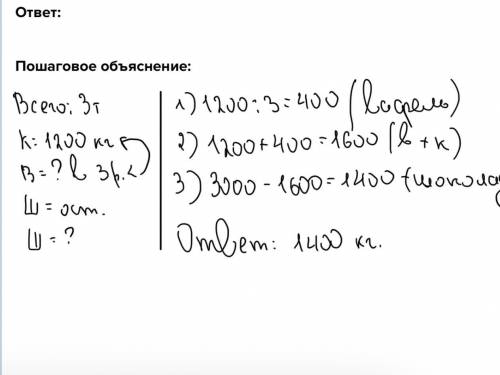 Ответ:
Пошаговое объяснение:
Всего: 3т
К = 1200 кг
В = ? в 3 р. <
Ш = ост.
Ш = ?
1) 1200 : 3 = 400 (вафель)
2) 1200 + 400 = 1600 (в + к)
3) 3000 - 1600 = 1400 - (шокола
Ответ: 1400 кг.